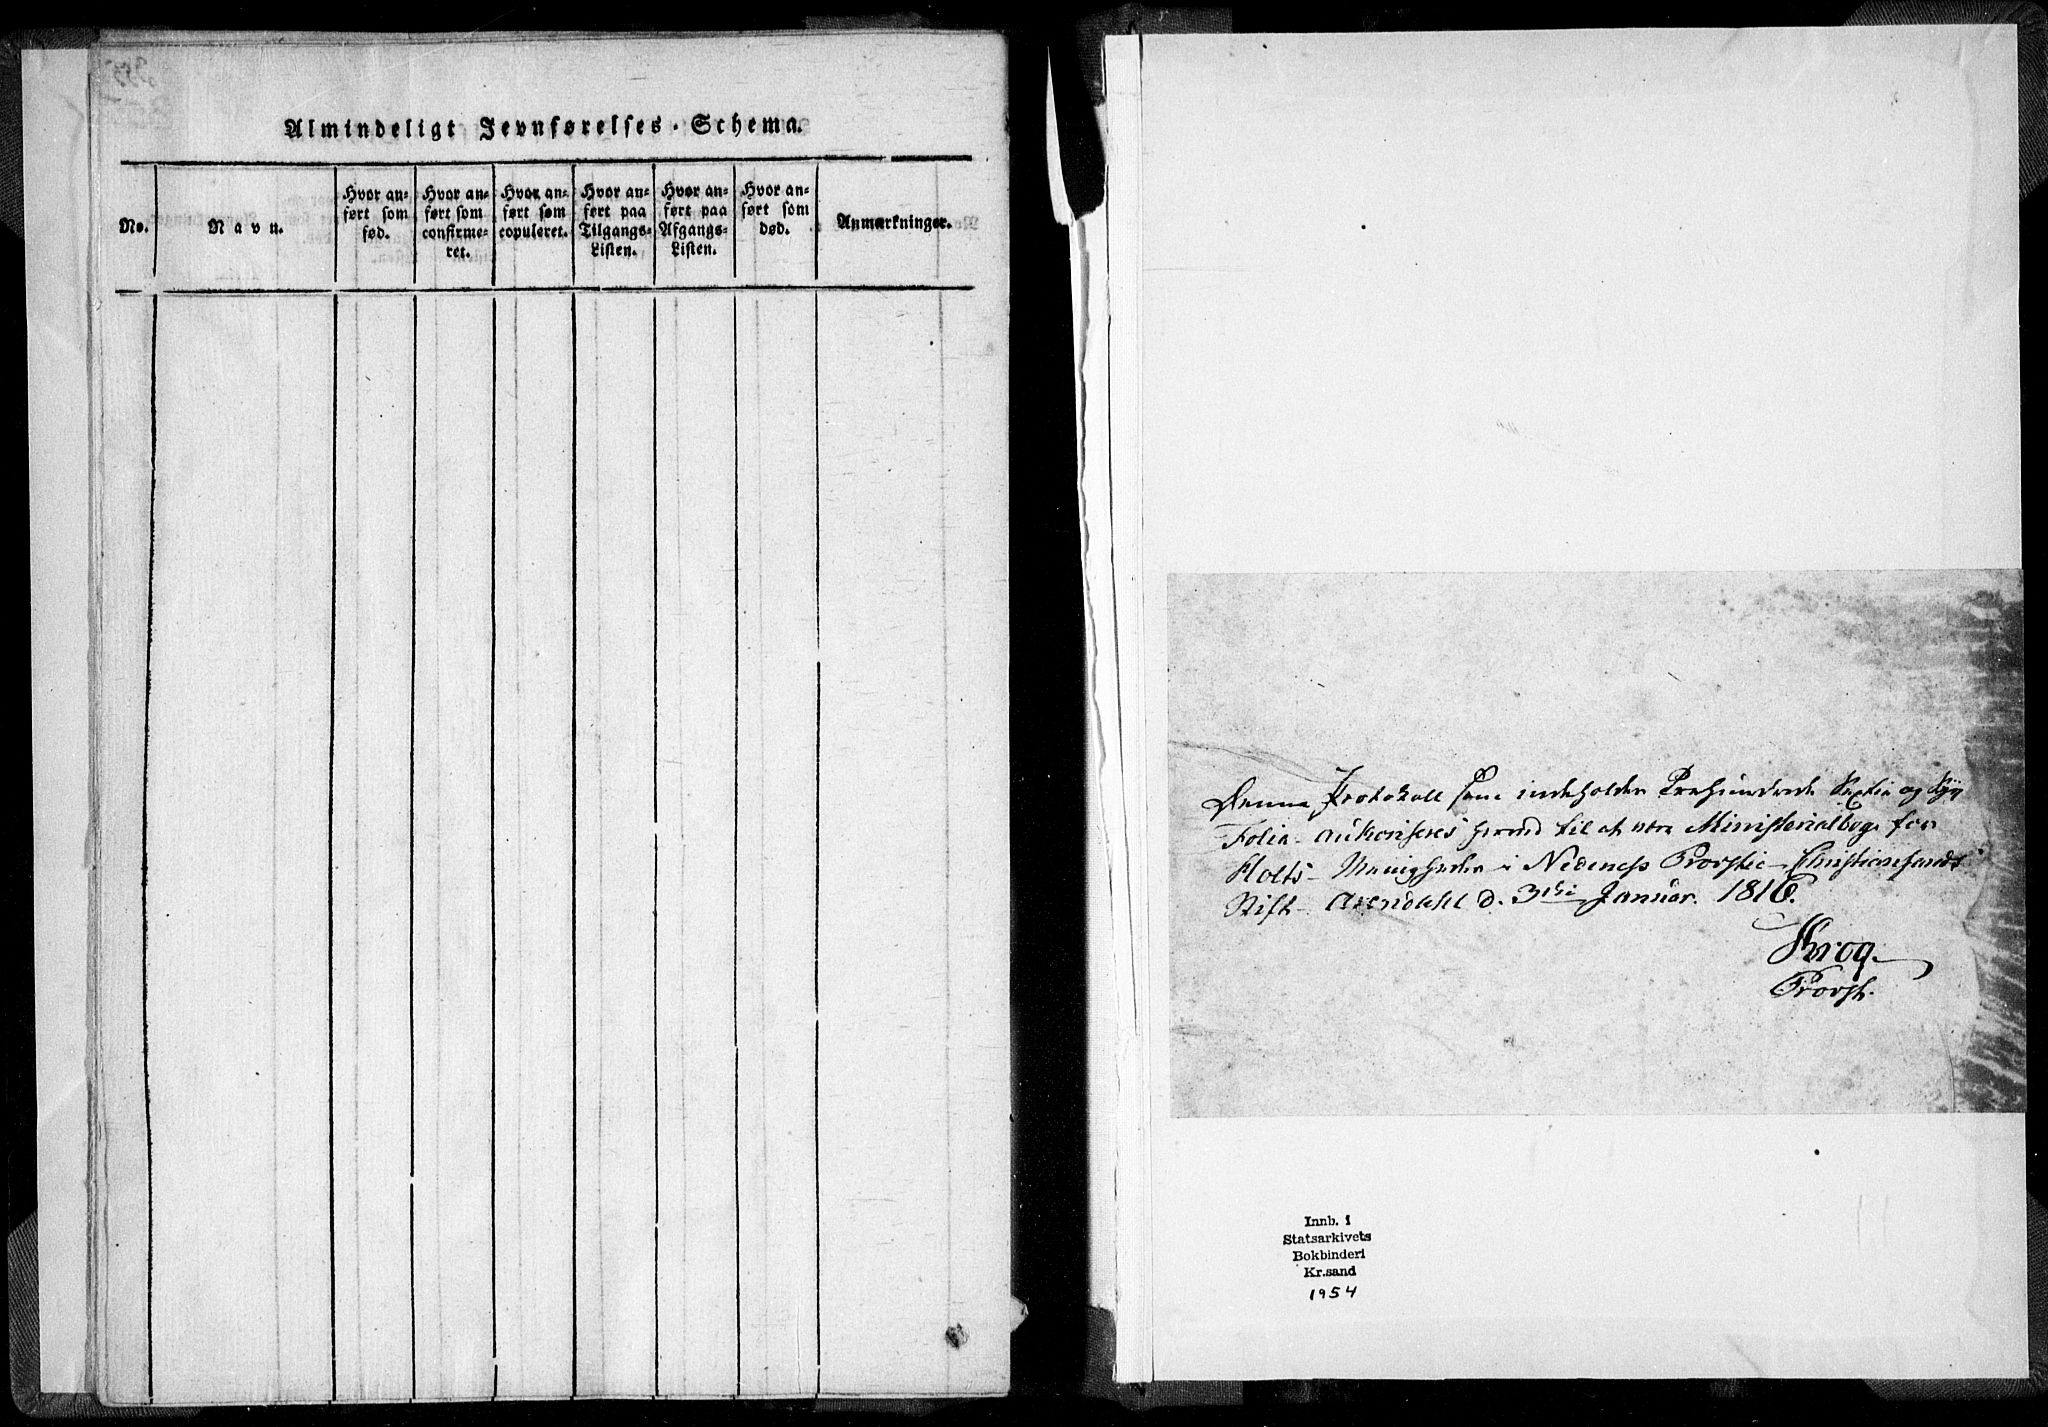 Almindeligt Jevnførelses-Schema.
No.
Navn.
Hvor an-
ført som
fød.
Hvor an-
ført som
confirme-
ret.
Hvor an-
ført som
copuleret.
Hvor an-
ført paa
Tilgangs-
Listen.
Hvor an-
ført paa
Afgangs-
Listen.
Hvor an-
ført som
død.
Anmærkninger.
Denne Protokoll som indeholder Trehundrede Sextie og Syv
Folia autoriseres herved til at være Ministerialbog for
Holts Menigheder i Nedenes Provstie Christiansands
Stift Arendahl d. 3die Januar. 1816.
Krog.
Provst.
Innb. i
Statsarkivets
Bokbinderi
Kr.sand
1954